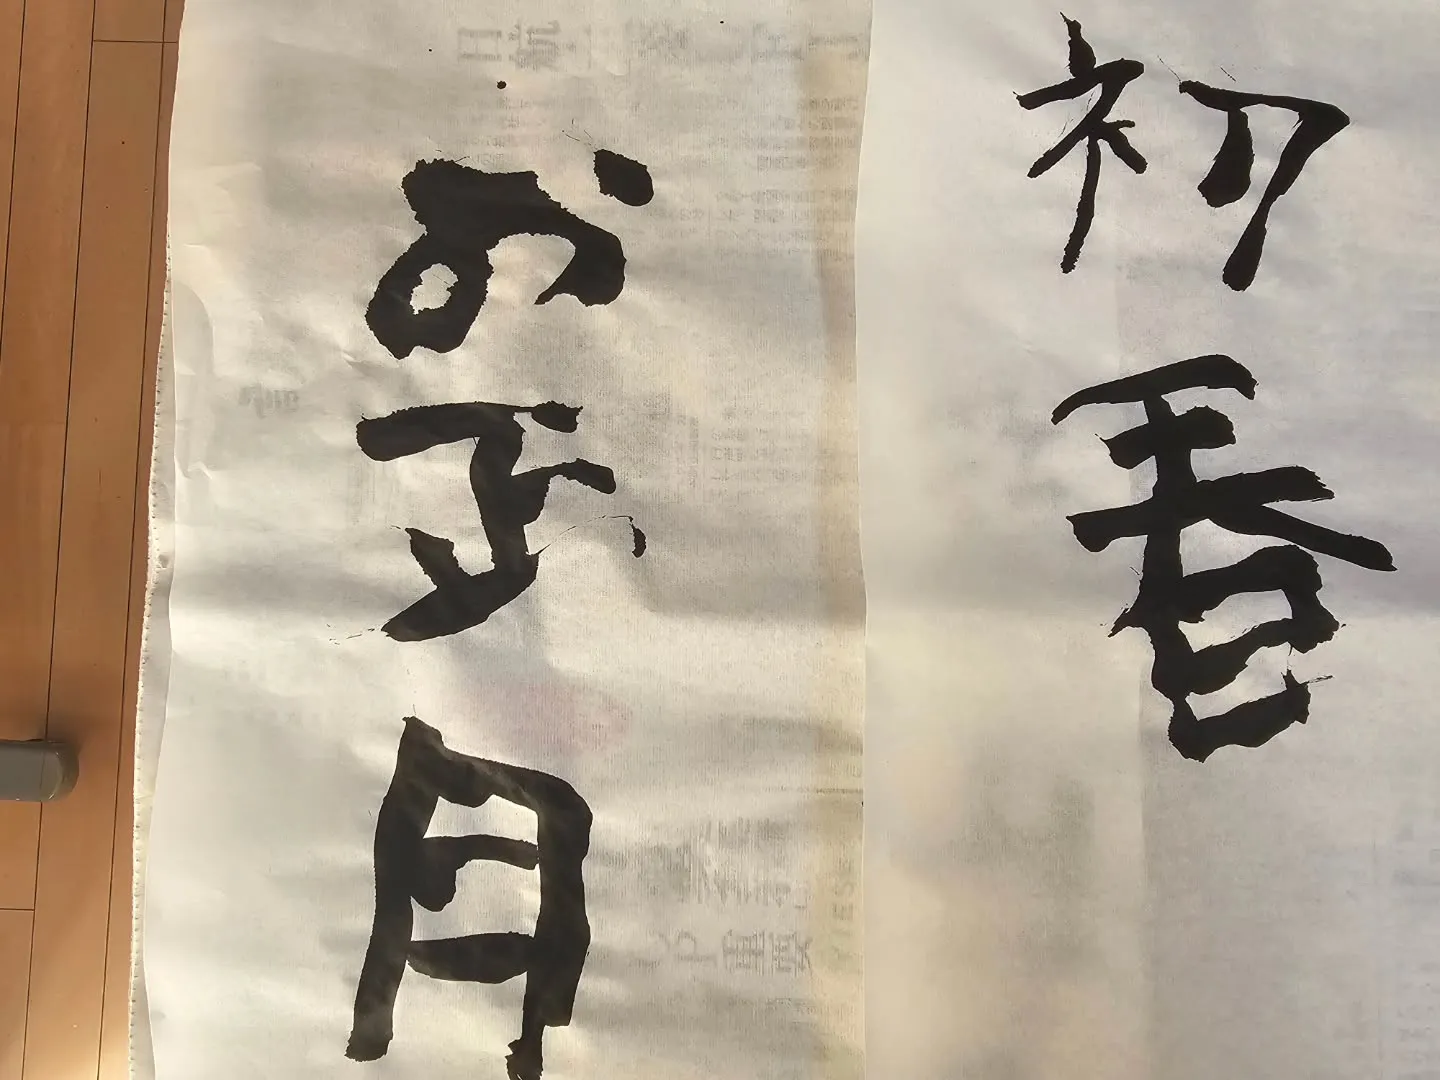 初春
お正月